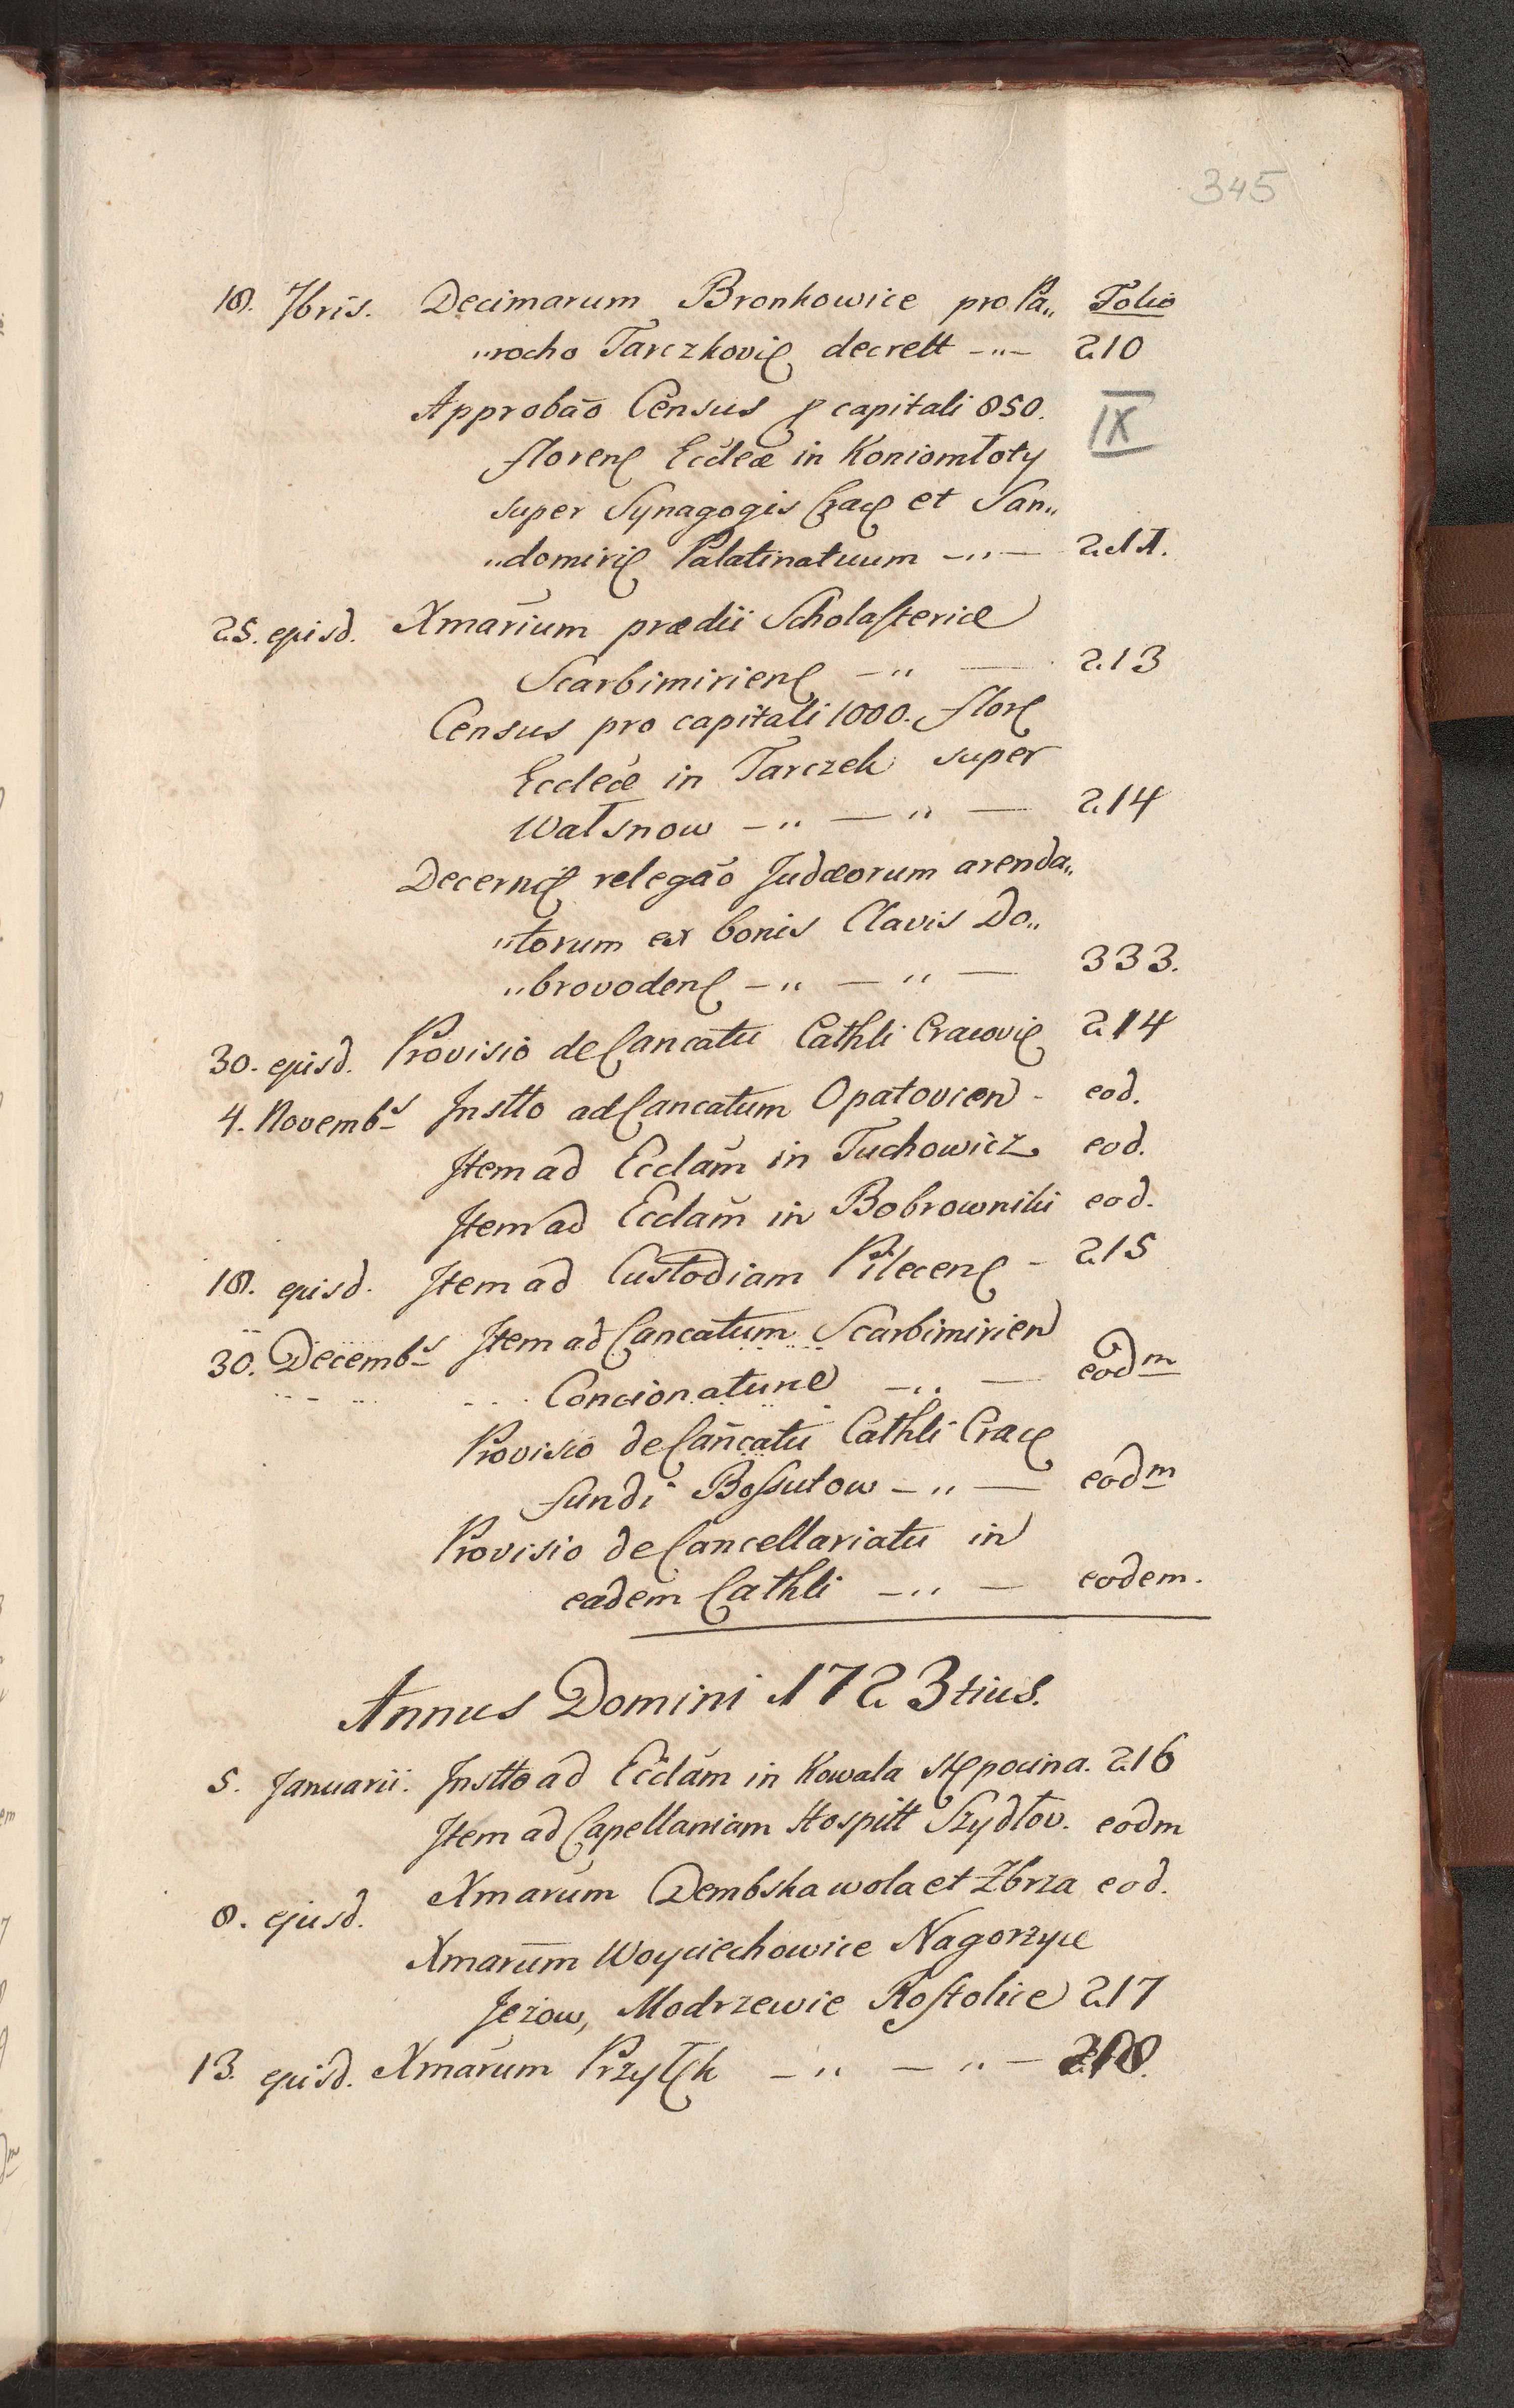 345
18. 7bris. Decimarum Bronkowice pro Pa„ Folio
„rocho Tarczkovię decrett -„- 210
Approbāo Census p capitali 850. IX
floren Eccleæ in Koniomłoty
super Synagogis Crac et San„
„domirię Palatinatuum -„- 211.
25. ejusd. Xmarium prædii Scholasteriæ
Scarbimirien -„- 213
Census pro capitali 1000. flor
Eccleæ in Tarczek super
Watsnow -„-„- 214
Decern relegāo Judæorum arenda„
„torum ex bonis Clavis Do„
„brovoden -„-„- 333.
30. ejusd. Provisio de Cancatu Cathli Cracovię 214
4. Novembs Instto ad Cancatum Opatovien - eod.
Item ad Ecclām in Tuchowicz eod.
Item ad Ecclām in Bobrowniki eod.
18. ejusd. Item ad Custodiam Pilecen - 215
30. Decembs Item ad Cancatum Scarbimirien
Concionaturæ -„- eodm
Provisio de Cañcatu Cathli Crac
fundi Bossutow -„- eodm
Provisio de Cancellariatu in
eadem Cathli -„- eodem.
Annus Domini 1723tius.
5. Januarii. Instto ad Ecclām in Kowala Stępocina. 216
Item ad Capellaniam Hospitt Szydłov. eodm
8. ejusd. Xmarum Dembska wola et Zbrza eod.
Xmarum Woyciechowice Nagorzyce
Jeżow, Modrzewie Rostolice 217
13. ejusd. Xmarum Przytyk -„-„- 218.